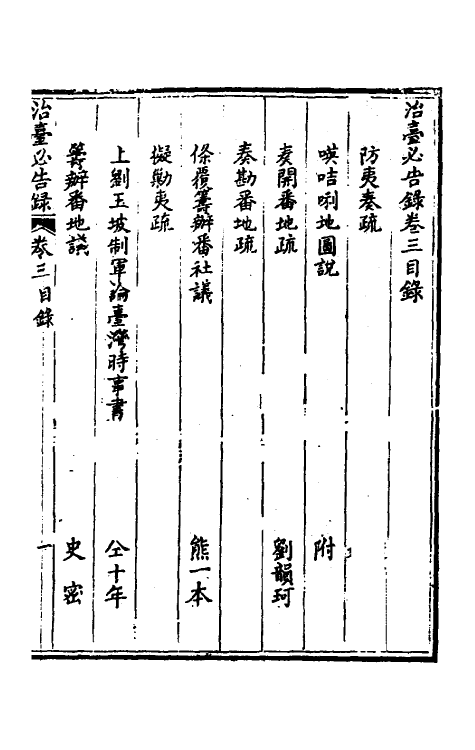 治臺必告錄卷三目錄
防夷奏疏
㗸咭唎地圖說 附
奏開番地疏 劉韻珂
奏勘番地疏
條覆籌辦番社議 熊一本
擬勦夷疏
上劉玉坡制軍論臺灣時事書 仝十年
籌辦番地議 史密
治臺必告錄 卷三目錄 一